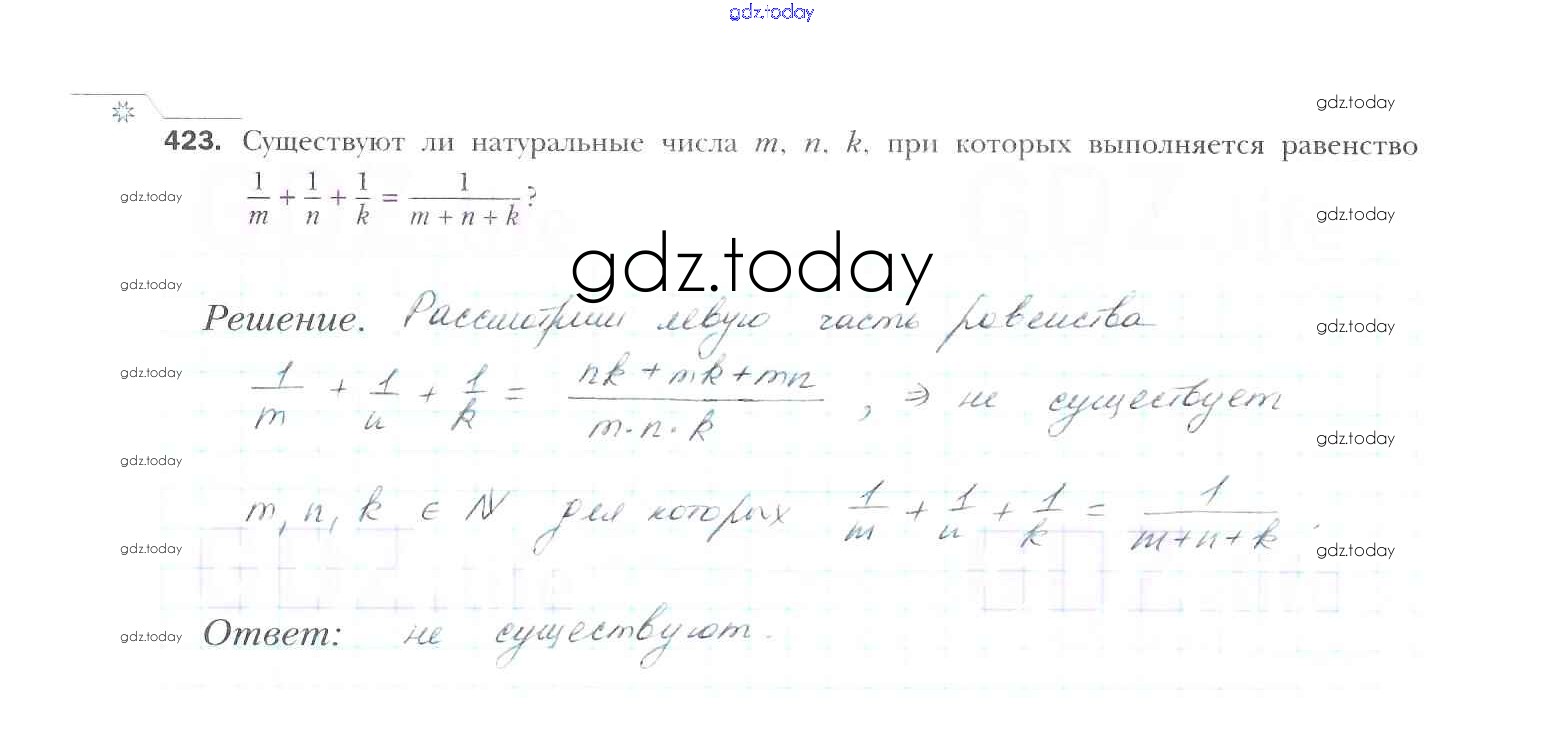 gdz.today
gdz.today
423. Существуют ли натуральные числа m, n, k, при которых выполняется равенство
1/m + 1/n + 1/k = 1/(m + n + k)?
gdz.today
gdz.today
gdz.today
gdz.today
Решение. Рассмотрим левую часть равенства
gdz.today
gdz.today
1/m + 1/n + 1/k = (nk + mk + mn)/(m·n·k), ⇒ не существует
gdz.today
gdz.today
m, n, k ∈ N для которых 1/m + 1/n + 1/k = 1/(m+n+k).
gdz.today
gdz.today
gdz.today
Ответ: не существуют.